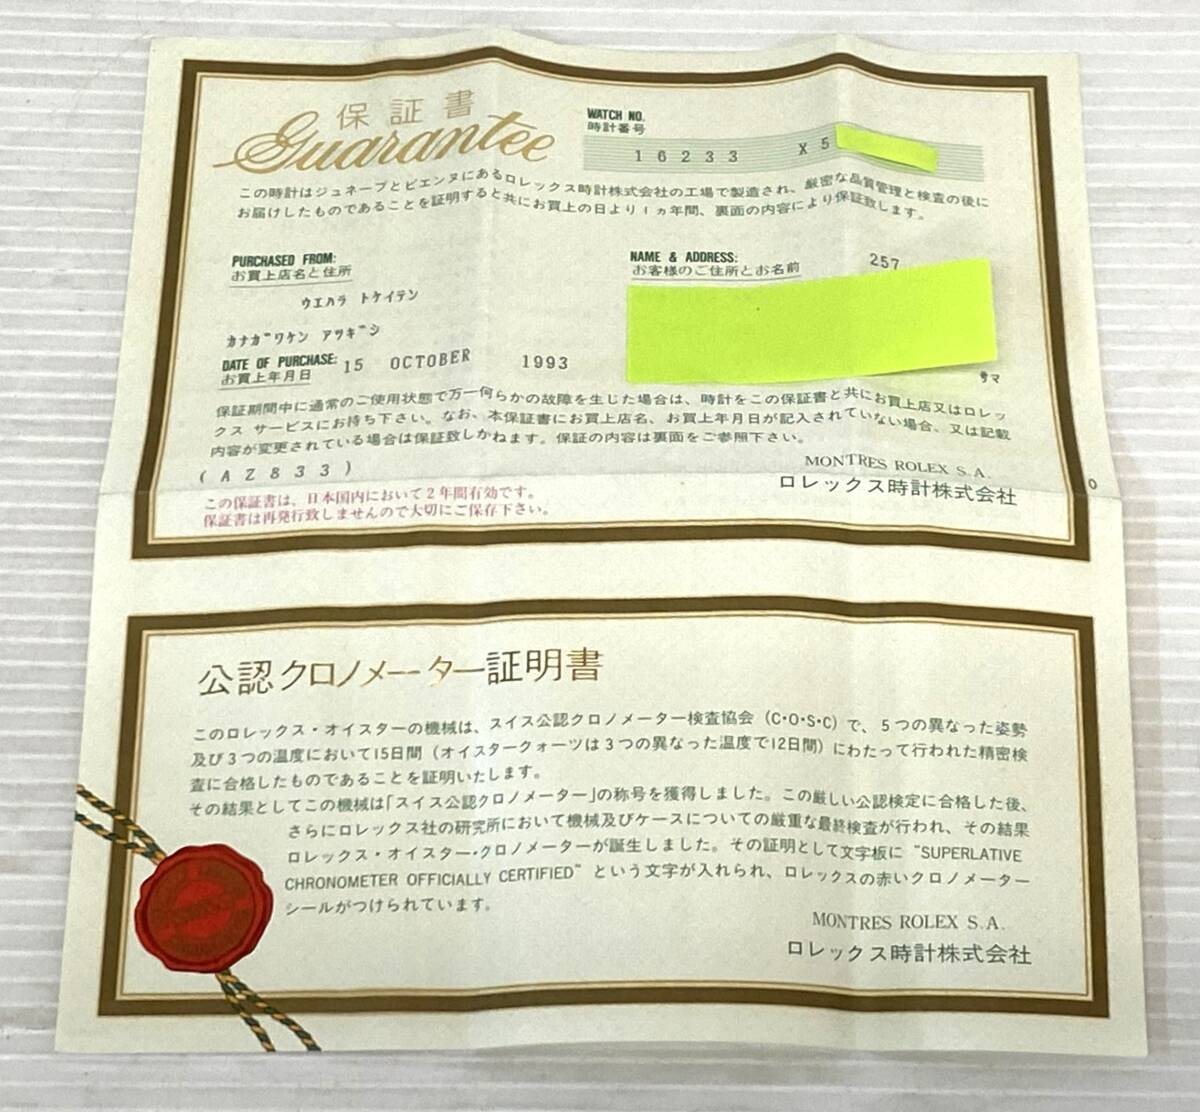 保証書
Guarantee
WATCH NO.
時計番号
16233 X5
この時計はジュネーブとビエンヌにあるロレックス時計株式会社の工場で製造され、厳密な品質管理と検査の後に
お届けしたものであることを証明すると共にお買上の日より1ヵ年間、裏面の内容により保証致します。
PURCHASED FROM:
お買上店名と住所
ウエハラ トケイテン
カナガワケン アツギシ
NAME & ADDRESS:
お客様のご住所とお名前
257
サマ
DATE OF PURCHASE:
お買上年月日
15 OCTOBER 1993
保証期間中に通常のご使用状態で万一何らかの故障を生じた場合は、時計をこの保証書と共にお買上店又はロレッ
クス サービスにお持ち下さい。なお、本保証書にお買上店名、お買上年月日が記入されていない場合、又は記載
内容が変更されている場合は保証致しかねます。保証の内容は裏面をご参照下さい。
(AZ833)
MONTRES ROLEX S.A.
ロレックス時計株式会社
0
この保証書は、日本国内において2年間有効です。
保証書は再発行致しませんので大切にご保存下さい。
公認クロノメーター証明書
このロレックス・オイスターの機械は、スイス公認クロノメーター検査協会(C・O・S・C)で、5つの異なった姿勢
及び3つの温度において15日間(オイスタークォーツは3つの異なった温度で12日間)にわたって行われた精密検
査に合格したものであることを証明いたします。
その結果としてこの機械は「スイス公認クロノメーター」の称号を獲得しました。この厳しい公認検定に合格した後、
さらにロレックス社の研究所において機械及びケースについての厳重な最終検査が行われ、その結果
ロレックス・オイスター・クロノメーターが誕生しました。その証明として文字板に "SUPERLATIVE
CHRONOMETER OFFICIALLY CERTIFIED" という文字が入れられ、ロレックスの赤いクロノメーター
シールがつけられています。
MONTRES ROLEX S.A.
ロレックス時計株式会社